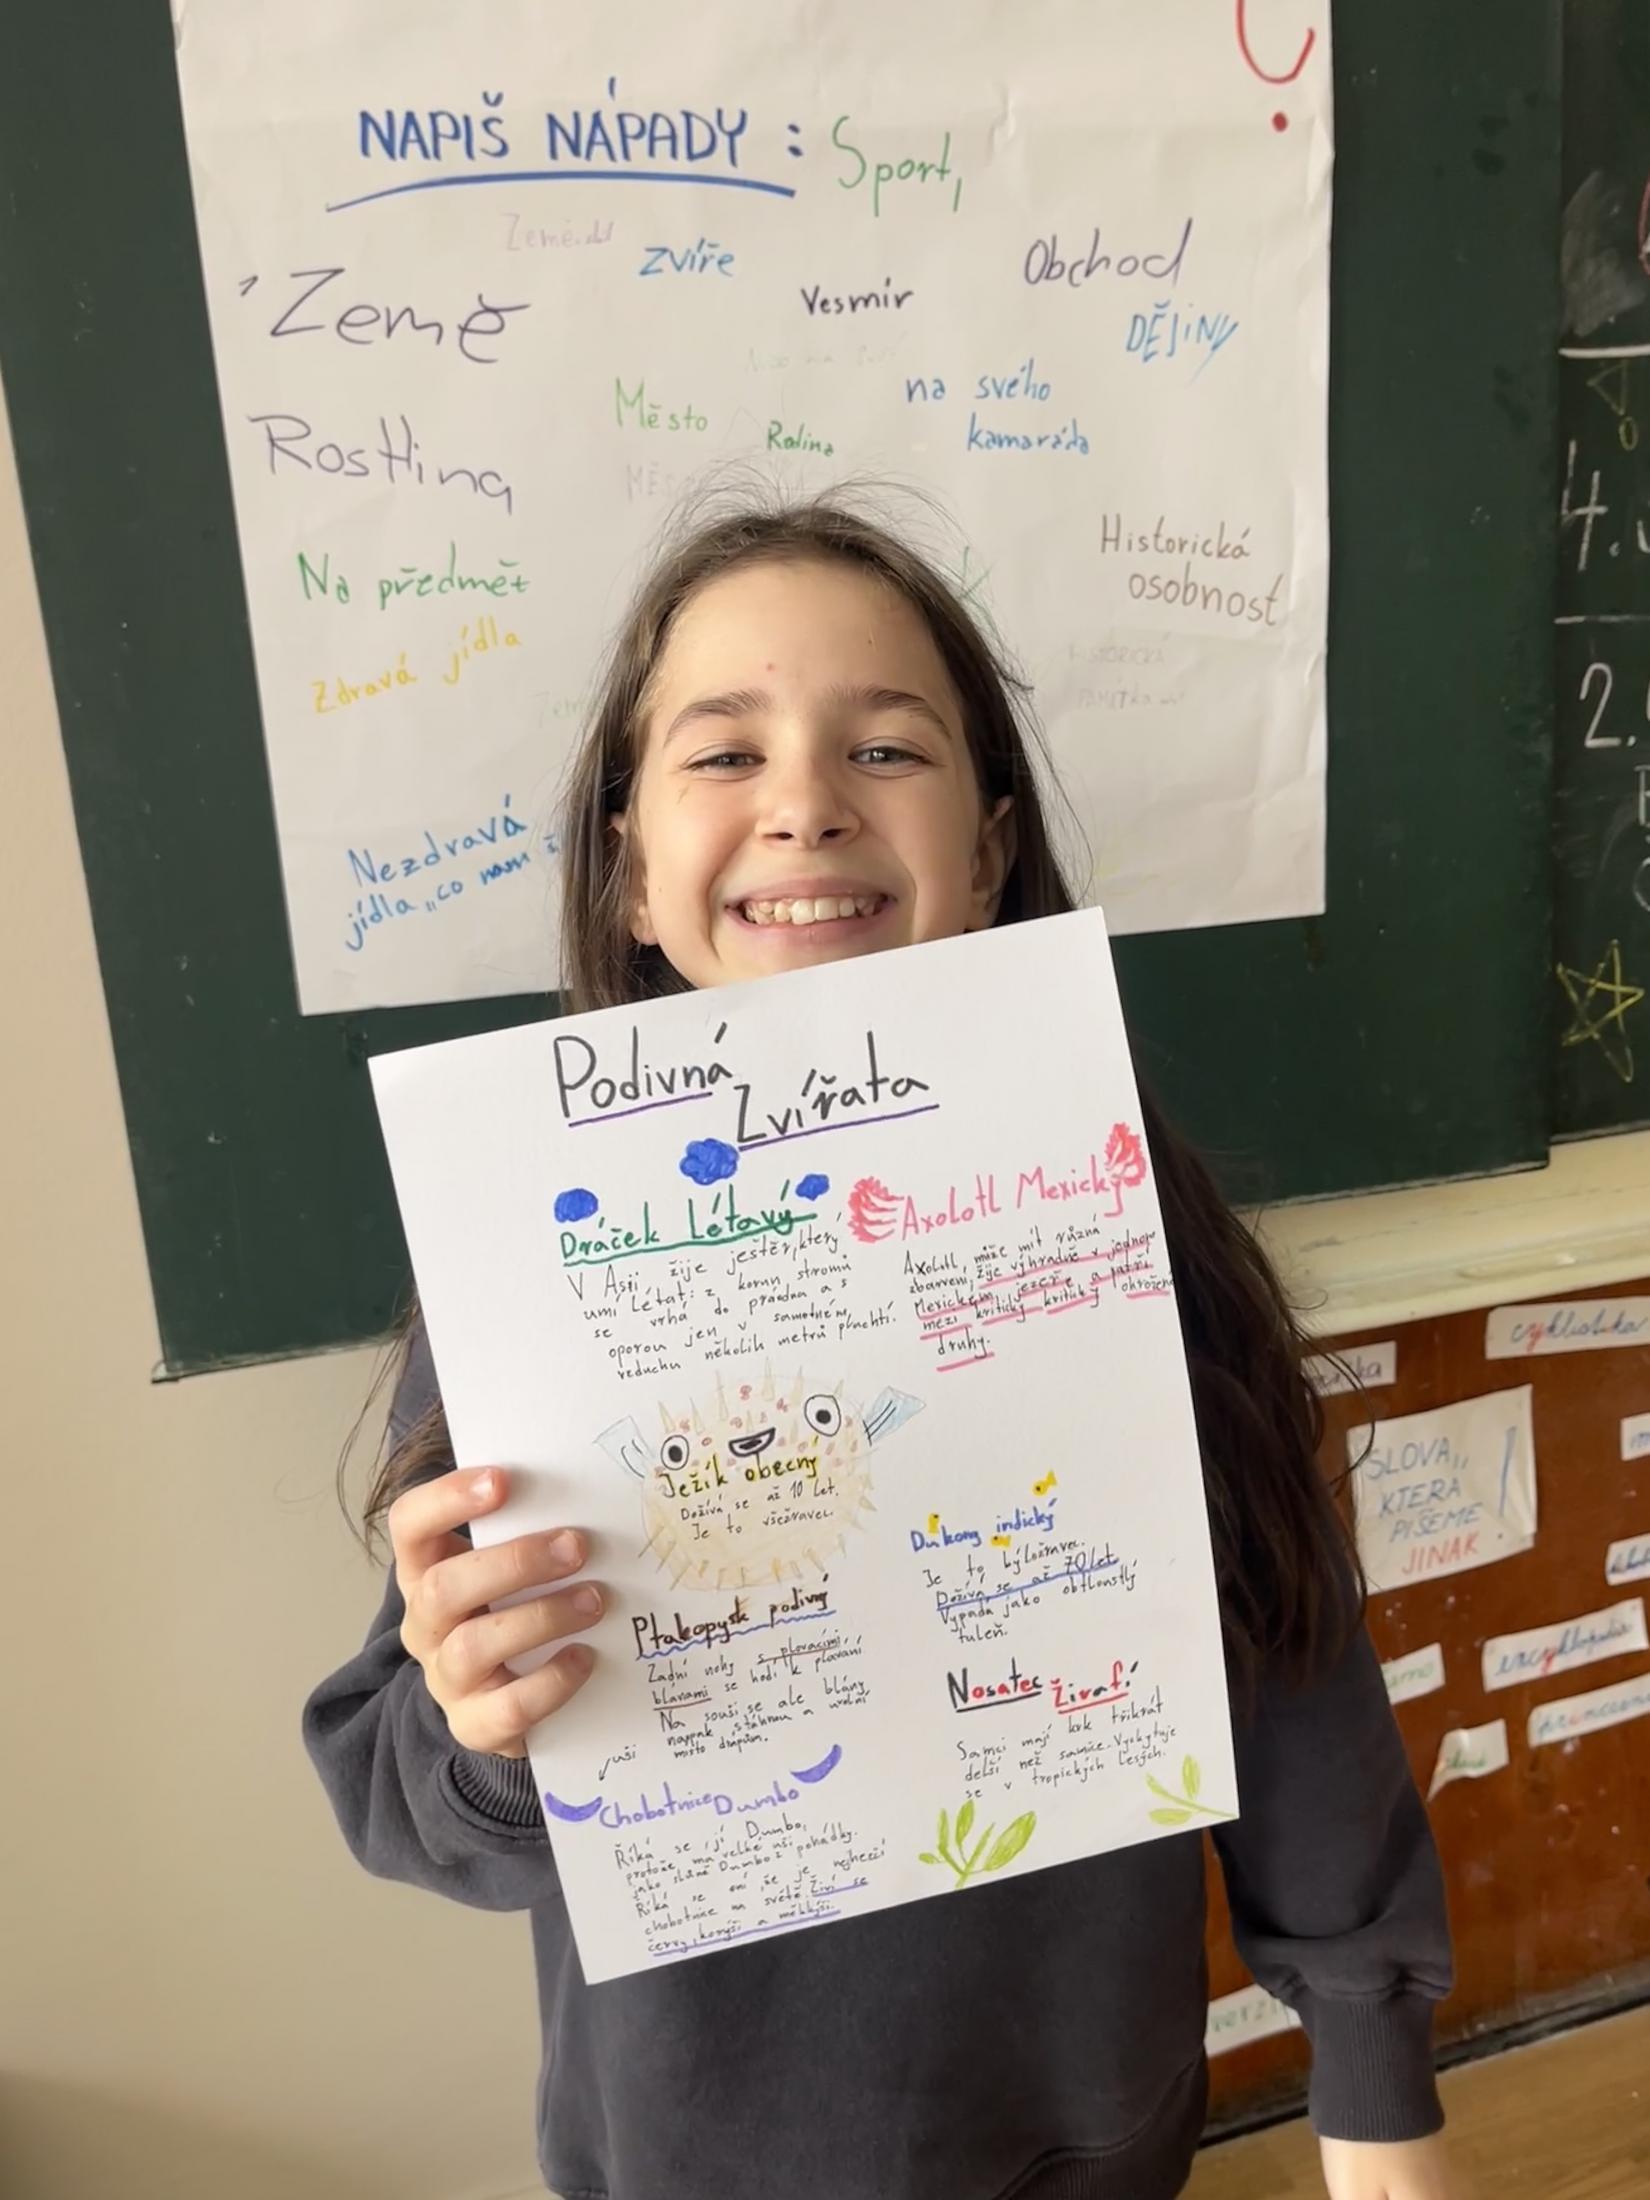 NAPIŠ NÁPADY : Sport,
zvíře
Obchod
Země
Vesmír
DĚJINY
Město
na svého
kamaráda
Rostlina
Historická
osobnost
Na předmět
Zdravá jídla
Nezdravá
jídla „co nam
4.
2.
Podivná
Zvířata
Dráček Létavý
V Asii žije jestěr, který
umí létat: z korun stromů
se vrhá do prázdna a s
oporou jen v samotném
vzduchu několik metrů plachtí.
Axolotl Mexický
Axolotl, může mít různá
zbarvení, žije výhradně v jednom
Mexickém jezeře a patří
mezi kriticky kriticky ohrožené
druhy.
Ježík obecný
Dožívá se až 10 let.
Je to všežravec.
Dukong indický
Je to býložravec.
Dožívá se až 70 let
Vypadá jako obtloustlý
tuleň.
Ptakopysk podivný
Zadní nohy s plovacími
blánami se hodí k plavání
Na souši se ale blány
naopak stáhnou a
místo drápům.
Nosatec Žirafí
Samci mají krk třikrát
delší než samice. Vyskytuje
se v tropických lesých.
uši
Chobotnice Dumbo
Říká se jí Dumbo,
protože má velké uši
jako slůně Dumbo z pohádky.
Říká se oní, že je nejhezčí
chobotnice na světě. Živí se
červy, korýši a měkkýši.
cyklistika
SLOVA,
KTERÁ
PÍŠEME
JINAK !
encyklopedie